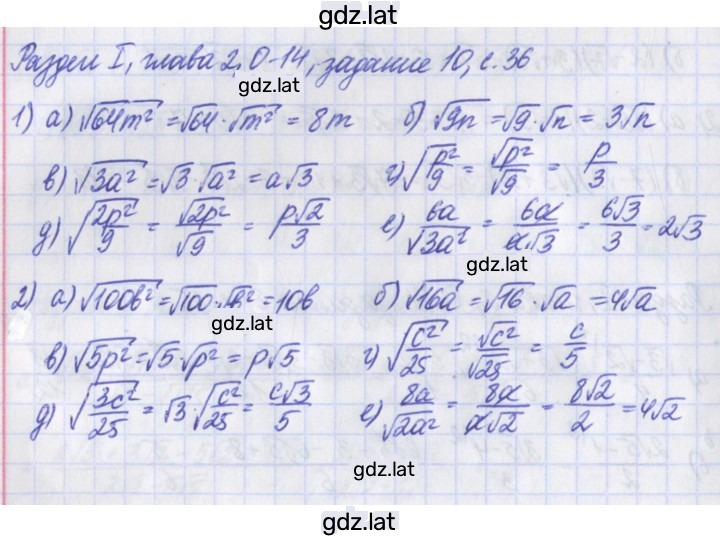 gdz.lat
Раздел I, глава 2, О-14, задание 10, с. 36
gdz.lat
1) а) √64m² = √64 · √m² = 8m б) √9n = √9 · √n = 3√n
в) √3a² = √3 · √a² = a√3 г) √(p²/9) = √p²/√9 = p/3
д) √(2p²/9) = √2p²/√9 = p√2/3 е) 6a/√3a² = 6a/a√3 = 6√3/3 = 2√3
gdz.lat
2) а) √100b² = √100 · √b² = 10b б) √16a = √16 · √a = 4√a
gdz.lat
в) √5p² = √5 · √p² = p√5 г) √(c²/25) = √c²/√25 = c/5
д) √(3c²/25) = √3 · √(c²/25) = c√3/5 е) 8a/√2a² = 8a/a√2 = 8√2/2 = 4√2
gdz.lat
gdz.lat